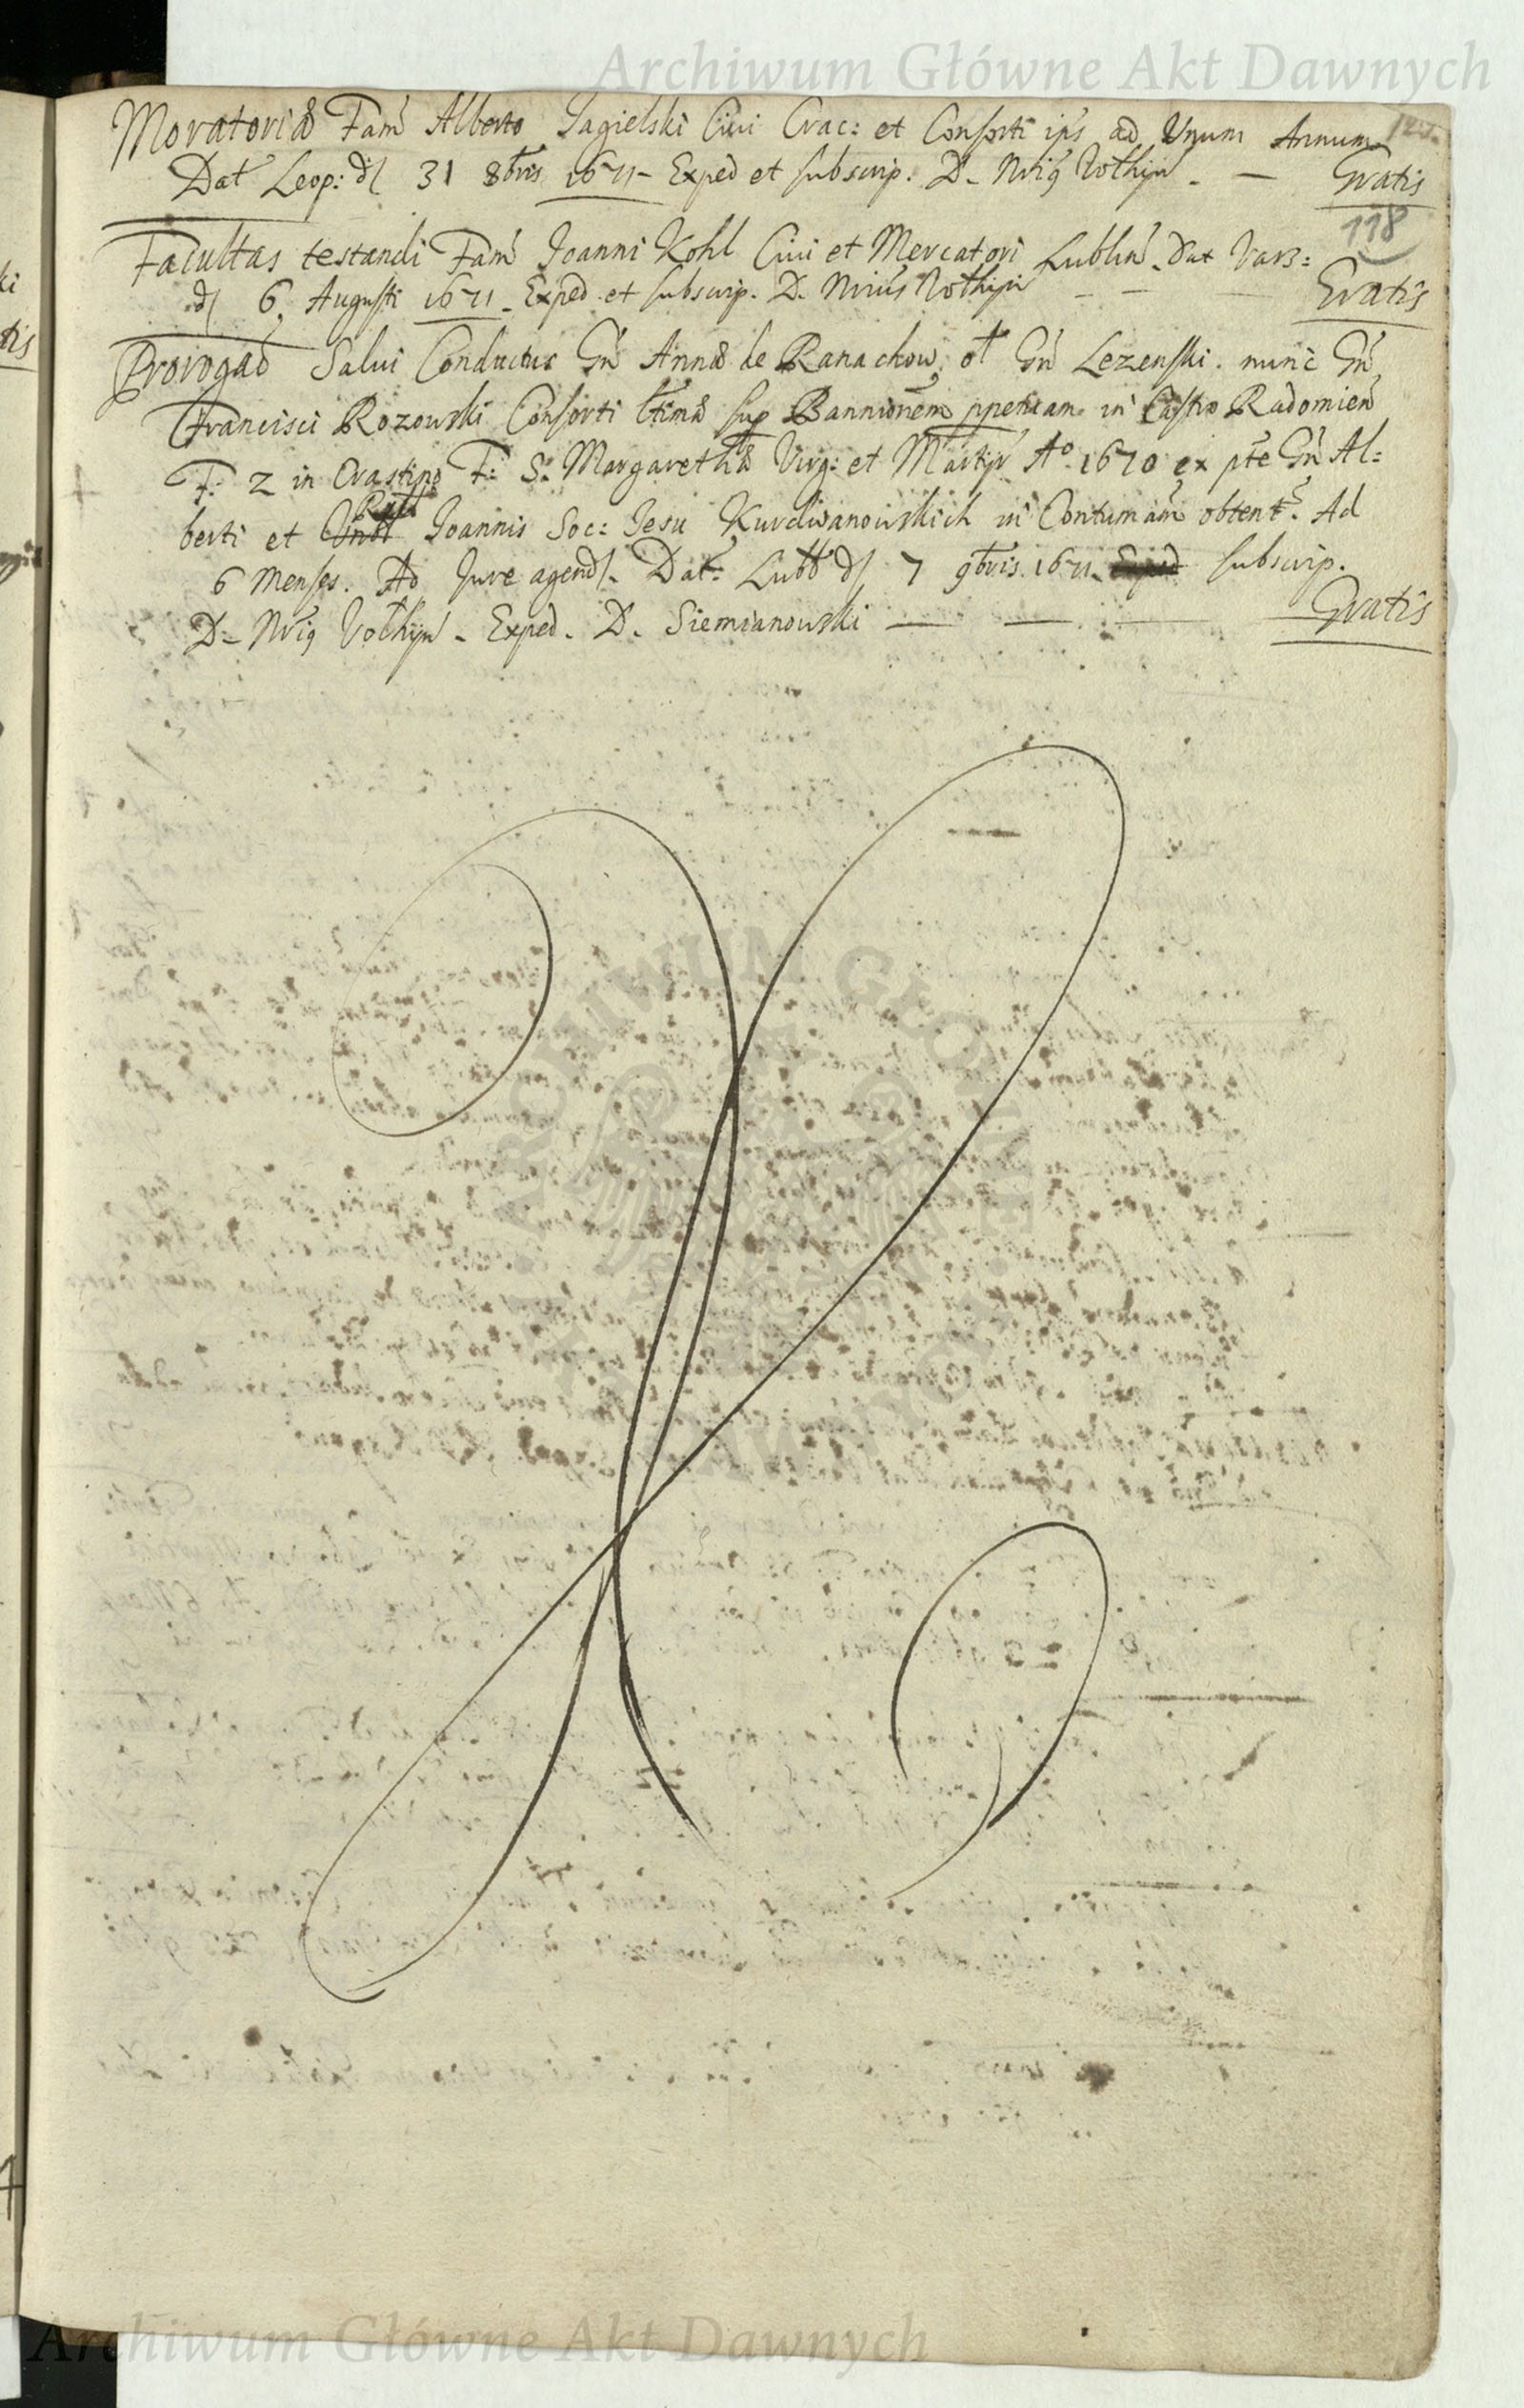 Archiwum Główne Akt Dawnych
Moratoriæ Fam̃ Alberto Jagielski Ciui Crac: et Consorti ips ad Unum Annum
Dat̃ Leop: d 31 8bris 1671 – Exped et subscrip. D. Nrig Vołhyn̄ – – Gratis
118
Facultas testandi Fam̃ Joanni Kohl Ciui et Mercatori Lublin̄. Dat Vars:
d 6 Augusti 1671 – Exped et subscrip. D. Nrius Vołhyn̄ – – Gratis
Prorogaõ Salui Conductus Gñ Annæ de Ranachow, ol Gñ Lezenski. nunc Gñ
Francisci Rozowski Consorti ltimæ sup Bannionem ppetuam in Castro Radomien̄
F: 2 in Crastino F: S: Margarethæ Virg: et Martyr A° 1670 ex pte Gñ Al=
berti et Rndi Joannis Soc: Jesu Kurdwanowskich in Contumam̃ obtent̃. Ad
6 Menses. Ad Jure agend. Dat̃: Lubl d 7 9bris 1671. Exped subscrip.
D. Nrig Vołhyn̄ – Exped. D. Siemianowski — — — Gratis
ARCHIWUM GŁÓWNE AKT DAWNYCH
Archiwum Główne Akt Dawnych